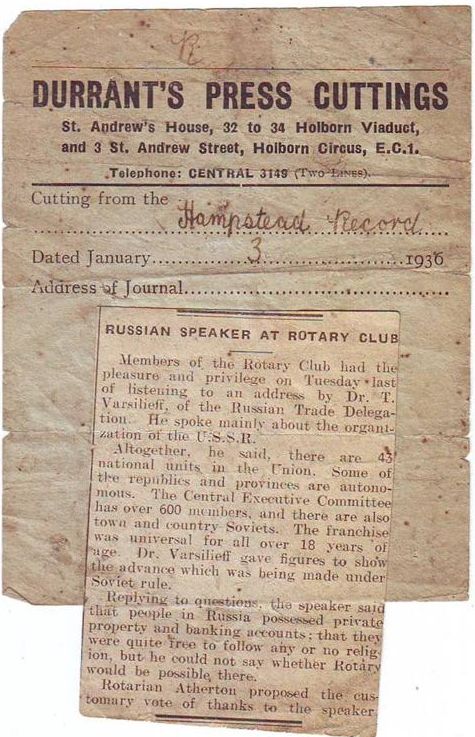 R
DURRANT'S PRESS CUTTINGS
St. Andrew's House, 32 to 34 Holborn Viaduct,
and 3 St. Andrew Street, Holborn Circus, E.C.1.
Telephone: CENTRAL 3149 (Two Lines).
Cutting from the
Hampstead Record
Dated January 3 1936
Address of Journal
RUSSIAN SPEAKER AT ROTARY CLUB
Members of the Rotary Club had the
pleasure and privilege on Tuesday last
of listening to an address by Dr. T.
Varsilieff, of the Russian Trade Delega-
tion. He spoke mainly about the organi-
zation of the U.S.S.R.
Altogether, he said, there are 43
national units in the Union. Some of
the republics and provinces are autono-
mous. The Central Executive Committee
has over 600 members, and there are also
town and country Soviets. The franchise
was universal for all over 18 years of
age. Dr. Varsilieff gave figures to show
the advance which was being made under
Soviet rule.
Replying to questions, the speaker said
that people in Russia possessed private
property and banking accounts; that they
were quite free to follow any or no relig-
ion, but he could not say whether Rotary
would be possible there.
Rotarian Atherton proposed the cus-
tomary vote of thanks to the speaker